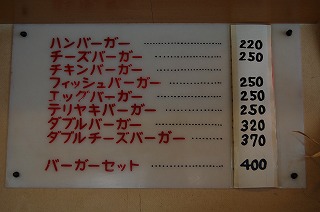 ハンバーガー ………… 220
チーズバーガー ………… 250
チキンバーガー …………
フィッシュバーガー ………… 250
エッグバーガー ………… 250
テリヤキバーガー ………… 250
ダブルバーガー ………… 320
ダブルチーズバーガー ………… 370
バーガーセット ………… 400